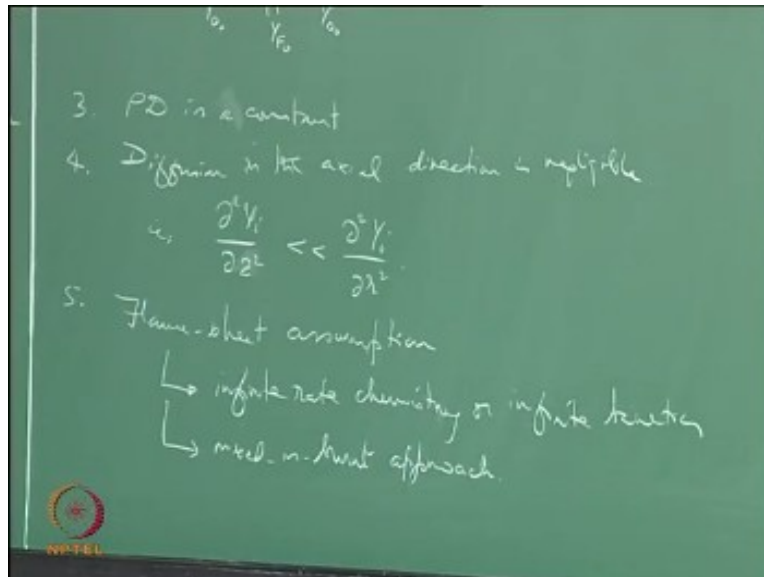 Y_{O_0} Y_{F_0} Y_{O_0}
3. ρD is a constant
4. Diffusion in the axial direction is negligible
ie, ∂²Y_i/∂z² << ∂²Y_i/∂r².
5. Flame-sheet assumption
↳ infinite rate chemistry or infinite kinetics
↳ mixed-is-burnt approach.
NPTEL